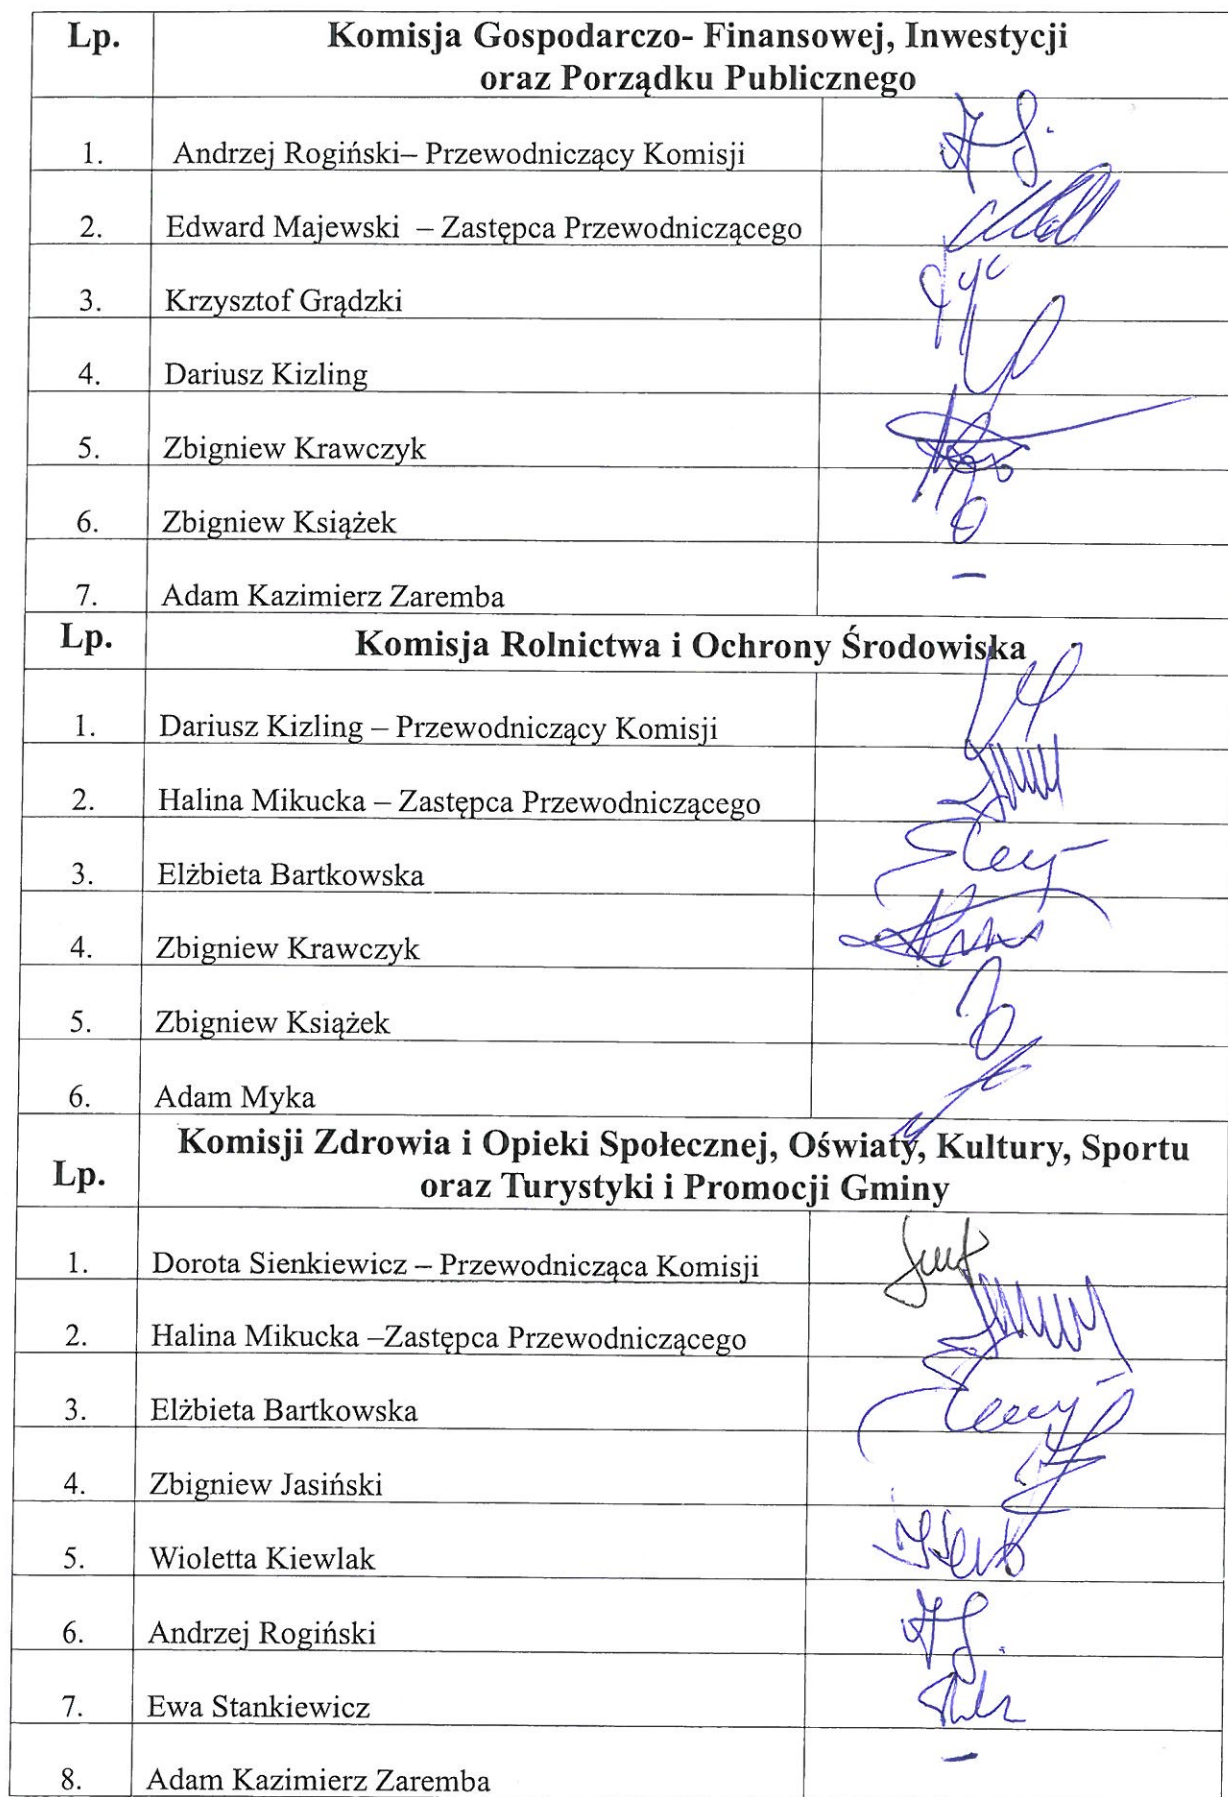 Lp. Komisja Gospodarczo- Finansowej, Inwestycji
oraz Porządku Publicznego
1. Andrzej Rogiński– Przewodniczący Komisji
2. Edward Majewski – Zastępca Przewodniczącego
3. Krzysztof Grądzki
4. Dariusz Kizling
5. Zbigniew Krawczyk
6. Zbigniew Książek
7. Adam Kazimierz Zaremba –
Lp. Komisja Rolnictwa i Ochrony Środowiska
1. Dariusz Kizling – Przewodniczący Komisji
2. Halina Mikucka – Zastępca Przewodniczącego
3. Elżbieta Bartkowska
4. Zbigniew Krawczyk
5. Zbigniew Książek
6. Adam Myka
Komisji Zdrowia i Opieki Społecznej, Oświaty, Kultury, Sportu
Lp. oraz Turystyki i Promocji Gminy
1. Dorota Sienkiewicz – Przewodnicząca Komisji
2. Halina Mikucka –Zastępca Przewodniczącego
3. Elżbieta Bartkowska
4. Zbigniew Jasiński
5. Wioletta Kiewlak
6. Andrzej Rogiński
7. Ewa Stankiewicz
8. Adam Kazimierz Zaremba –